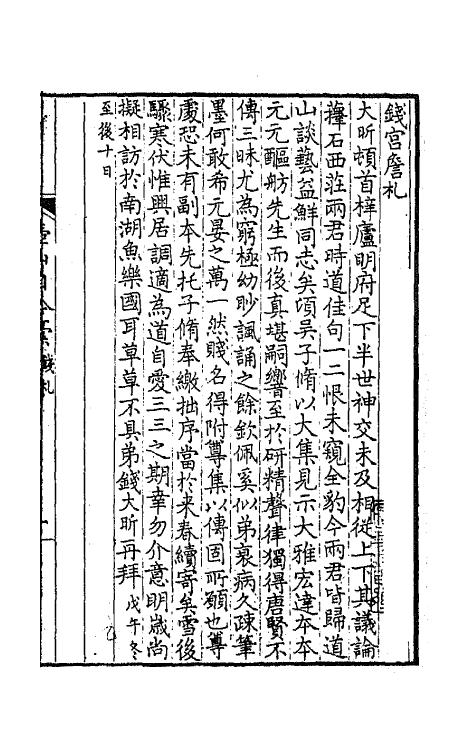 錢宮詹札
大昕頓首梓廬明府足下半世神交未及相從上下其議論
蘀石西莊兩君時道佳句一二恨未窺全豹今兩君皆歸道
山談藝益鮮同志矣頃吳子脩以大集見示大雅宏達本本
元元醧舫先生而後真堪嗣響至於研精聲律獨得唐賢不
傳三昧尤為窮極幼眇諷誦之餘欽佩奚似弟衰病久疎筆
墨何敢希元晏之萬一然賤名得附尊集以傳固所願也尊
處恐未有副本先托子脩奉繳拙序當於来春續寄矣雪後
驟寒伏惟興居調適為道自愛三三之期幸勿介意明嵗尚
擬相訪於南湖魚樂國耳草草不具弟錢大昕再拜 戊午冬
至後十日
錢札